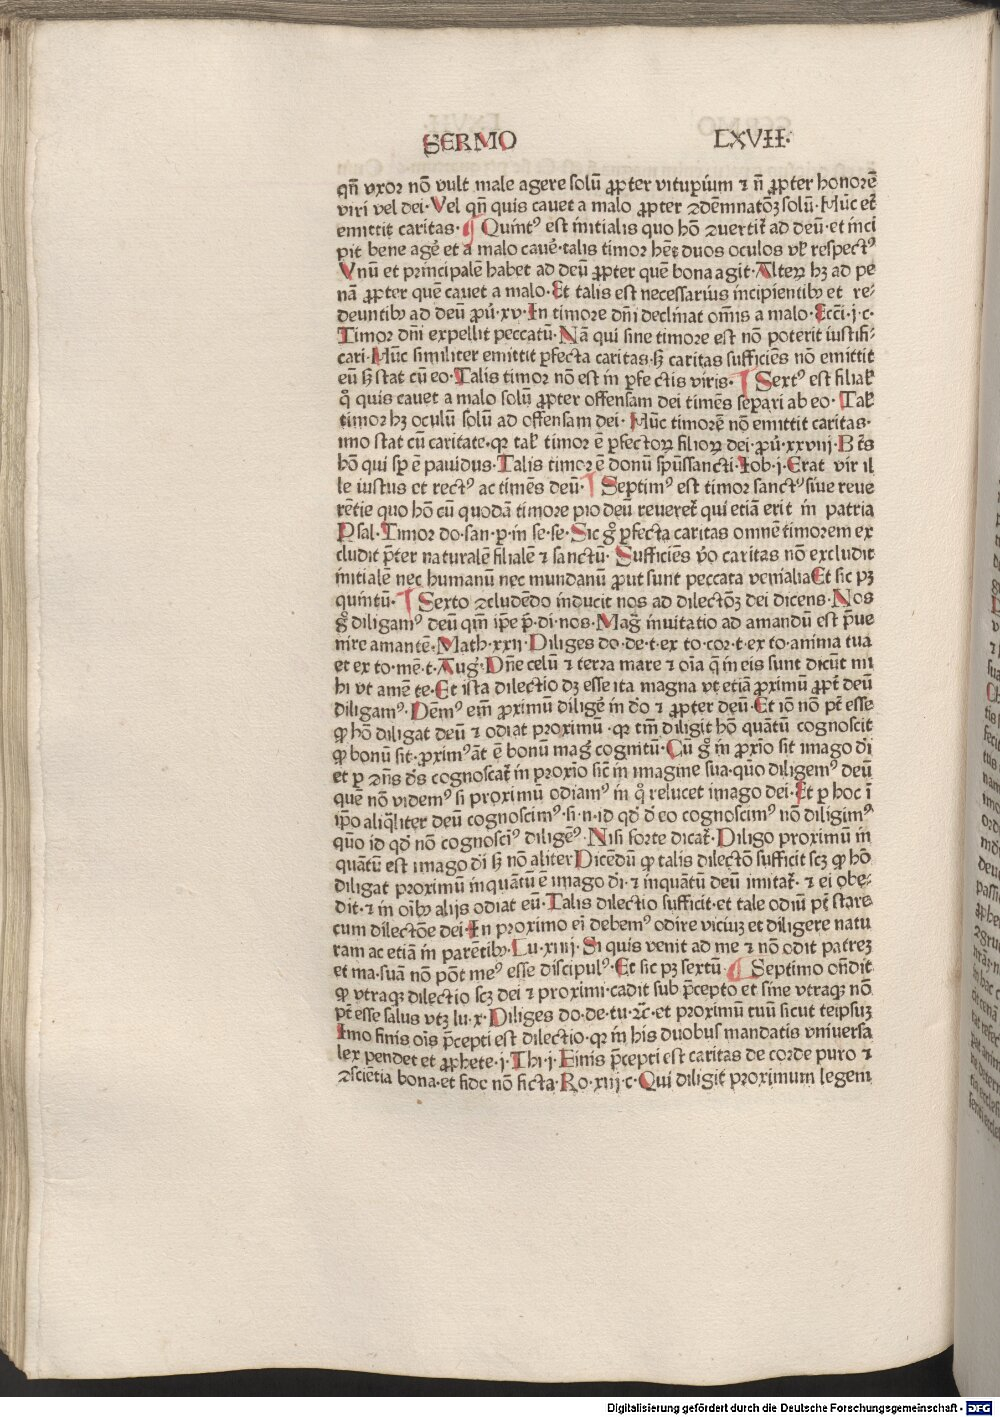 SERMO LXVII·
qn̄ vxor nō vult male agere solū ꝓpter vitupium ⁊ n̄ ꝓpter honorē
viri vel dei· Vel qn̄ quis cauet a malo ꝓpter ꝯdēmnatōꝫ solū· Hūc et̄
emittit caritas· ¶ Quint⁹ est initialis quo hō ꝯuertit̄ ad deū· et inci
pit bene agē et a malo cauē· talis timor hēt duos oculos vl̓ respect⁹
Vnū et principalē habet ad deū ꝓpter quē bona agit· Alterꝝ hꝫ ad pe
nā ꝓpter quē cauet a malo· Et talis est necessarius incipientibꝰ et re⸗
deuntibꝰ ad deū ꝓū· xv· In timore dn̄i declinat om̄is a malo· Ecci· j· c·
Timor dn̄i expellit peccatū· Nā qui sine timore est nō poterit iustifi⸗
cari· Hūc similiter emittit ꝑfecta caritas· sꝫ caritas sufficiēs nō emittit
eū sꝫ stat cū eo· Talis timor nō est in ꝑfectis viris· ¶ Sext⁹ est filial̓
q̄ quis cauet a malo solū ꝓpter offensam dei timēs separi ab eo· Tal̓
timor hꝫ oculū solū ad offensam dei· Hūc timorē nō emittit caritas·
imo stat cū caritate· qꝛ tal̓ timor ē ꝑfectoꝝ filioꝝ dei· ꝓū· xxviij· B t̄s
hō qui sp ē pauidus· Talis timor ē donū spūssancti· Iob· j· Erat vir il
le iustus et rect⁹ ac timēs deū· ¶ Septim⁹ est timor sanct⁹ siue reue
rētie quo hō cū quodā timore pio deū reueret̄ qui etiā erit in patria
Psal· Timor do· san· p· in se· se· Sic gͦ ꝑfecta caritas omnē timorem ex
cludit p̄ter naturalē filialē ⁊ sanctū· Sufficiēs v̄o caritas nō excludit
initialē nec humanū nec mundanū ꝓut sunt peccata venialia Et sic pꝫ
quintū· ¶ Sexto ꝯcludēdo inducit nos ad dilectōꝫ dei dicens· Nos
gͦ diligam⁹ deū qm̄ ip̄e p̄· di· nos· Mag̅ inuitatio ad amandū est p̄ue
nīre amantē· Math· xxij· Diliges do· de· t· ex to· cor· t· ex to· anima tua
et ex to· mē· t· Aug̓· Dn̄e celū ⁊ terra mare ⁊ oīa q̄ in eis sunt dicūt mi
hi vt amē te· Et ista dilectio dꝫ esse ita magna vt etiā ꝓximū ꝓpt̄ deū
diligam⁹· Dēm⁹ eīm ꝓximū diligē in d̄o ⁊ ꝓpter deū· Et iō nō pt̄ esse
ꝙ hō diligat deū ⁊ odiat proximū· qꝛ tm̄ diligit hō quātū cognoscit
ꝙ bonū sit· ꝓxim⁹ āt ē bonū mag̅ cognitū· Cū gͦ in ꝓxīo sit imago d̄i
et ꝑ ꝯn̄s d̄s cognoscat̄ in proxīo sic̄ in imagine sua· quō diligem⁹ deū
quē nō videm⁹ si proximū odiam⁹ in qͦ relucet imago dei· Et ꝑ hoc ī
ip̄o aliq̄liter deū cognoscim⁹· si· n· id qd̓ d̄ eo cognoscim⁹ nō diligim⁹
quō id qd̓ nō cognosci⁹ diligē⁹· Nisi forte dicat̄· Diligo proximū in
quātū est imago d̄i sꝫ nō aliter Dicēdū ꝙ talis dilectō sufficit scꝫ ꝙ hō
diligat proximū inquātū ē imago d̄i· ⁊ inquātū deū imitat̄· ⁊ ei obe⸗
dit· ⁊ in oībꝰ alijs odiat eū· Talis dilectio sufficit· et tale odiū pt̄ stare
cum dilectōe dei· In proximo ei̅ debem⁹ odire viciuꝫ et diligere natu
ram ac etiā in parētibꝰ· Lu· xiiij· Si quis venit ad me ⁊ nō odit patreꝫ
et ma· suā nō pōt me⁹ esse discipul⁹· Et sic pꝫ sextū· ¶ Septimo on̄dit
ꝙ vtraqꝫ dilectio scꝫ dei ⁊ proximi· cadit sub p̄cepto et sine vtraqꝫ nō
pt̄ esse salus vtꝫ lu· x· Diliges do· de· tu· ⁊c̄· et proximū tuū sicut teipsuꝫ
Imo finis oīs p̄cepti est dilectio· qꝛ in his duobus mandatis vniuersa
lex pendet et ꝓphete· j· Th· j· Finis p̄cepti est caritas de corde puro ⁊
ꝯsciētia bona· et fide nō ficta· Ro· xiij· c· Qui diligit proximum legem
Digitalisierung gefördert durch die Deutsche Forschungsgemeinschaft - DFG